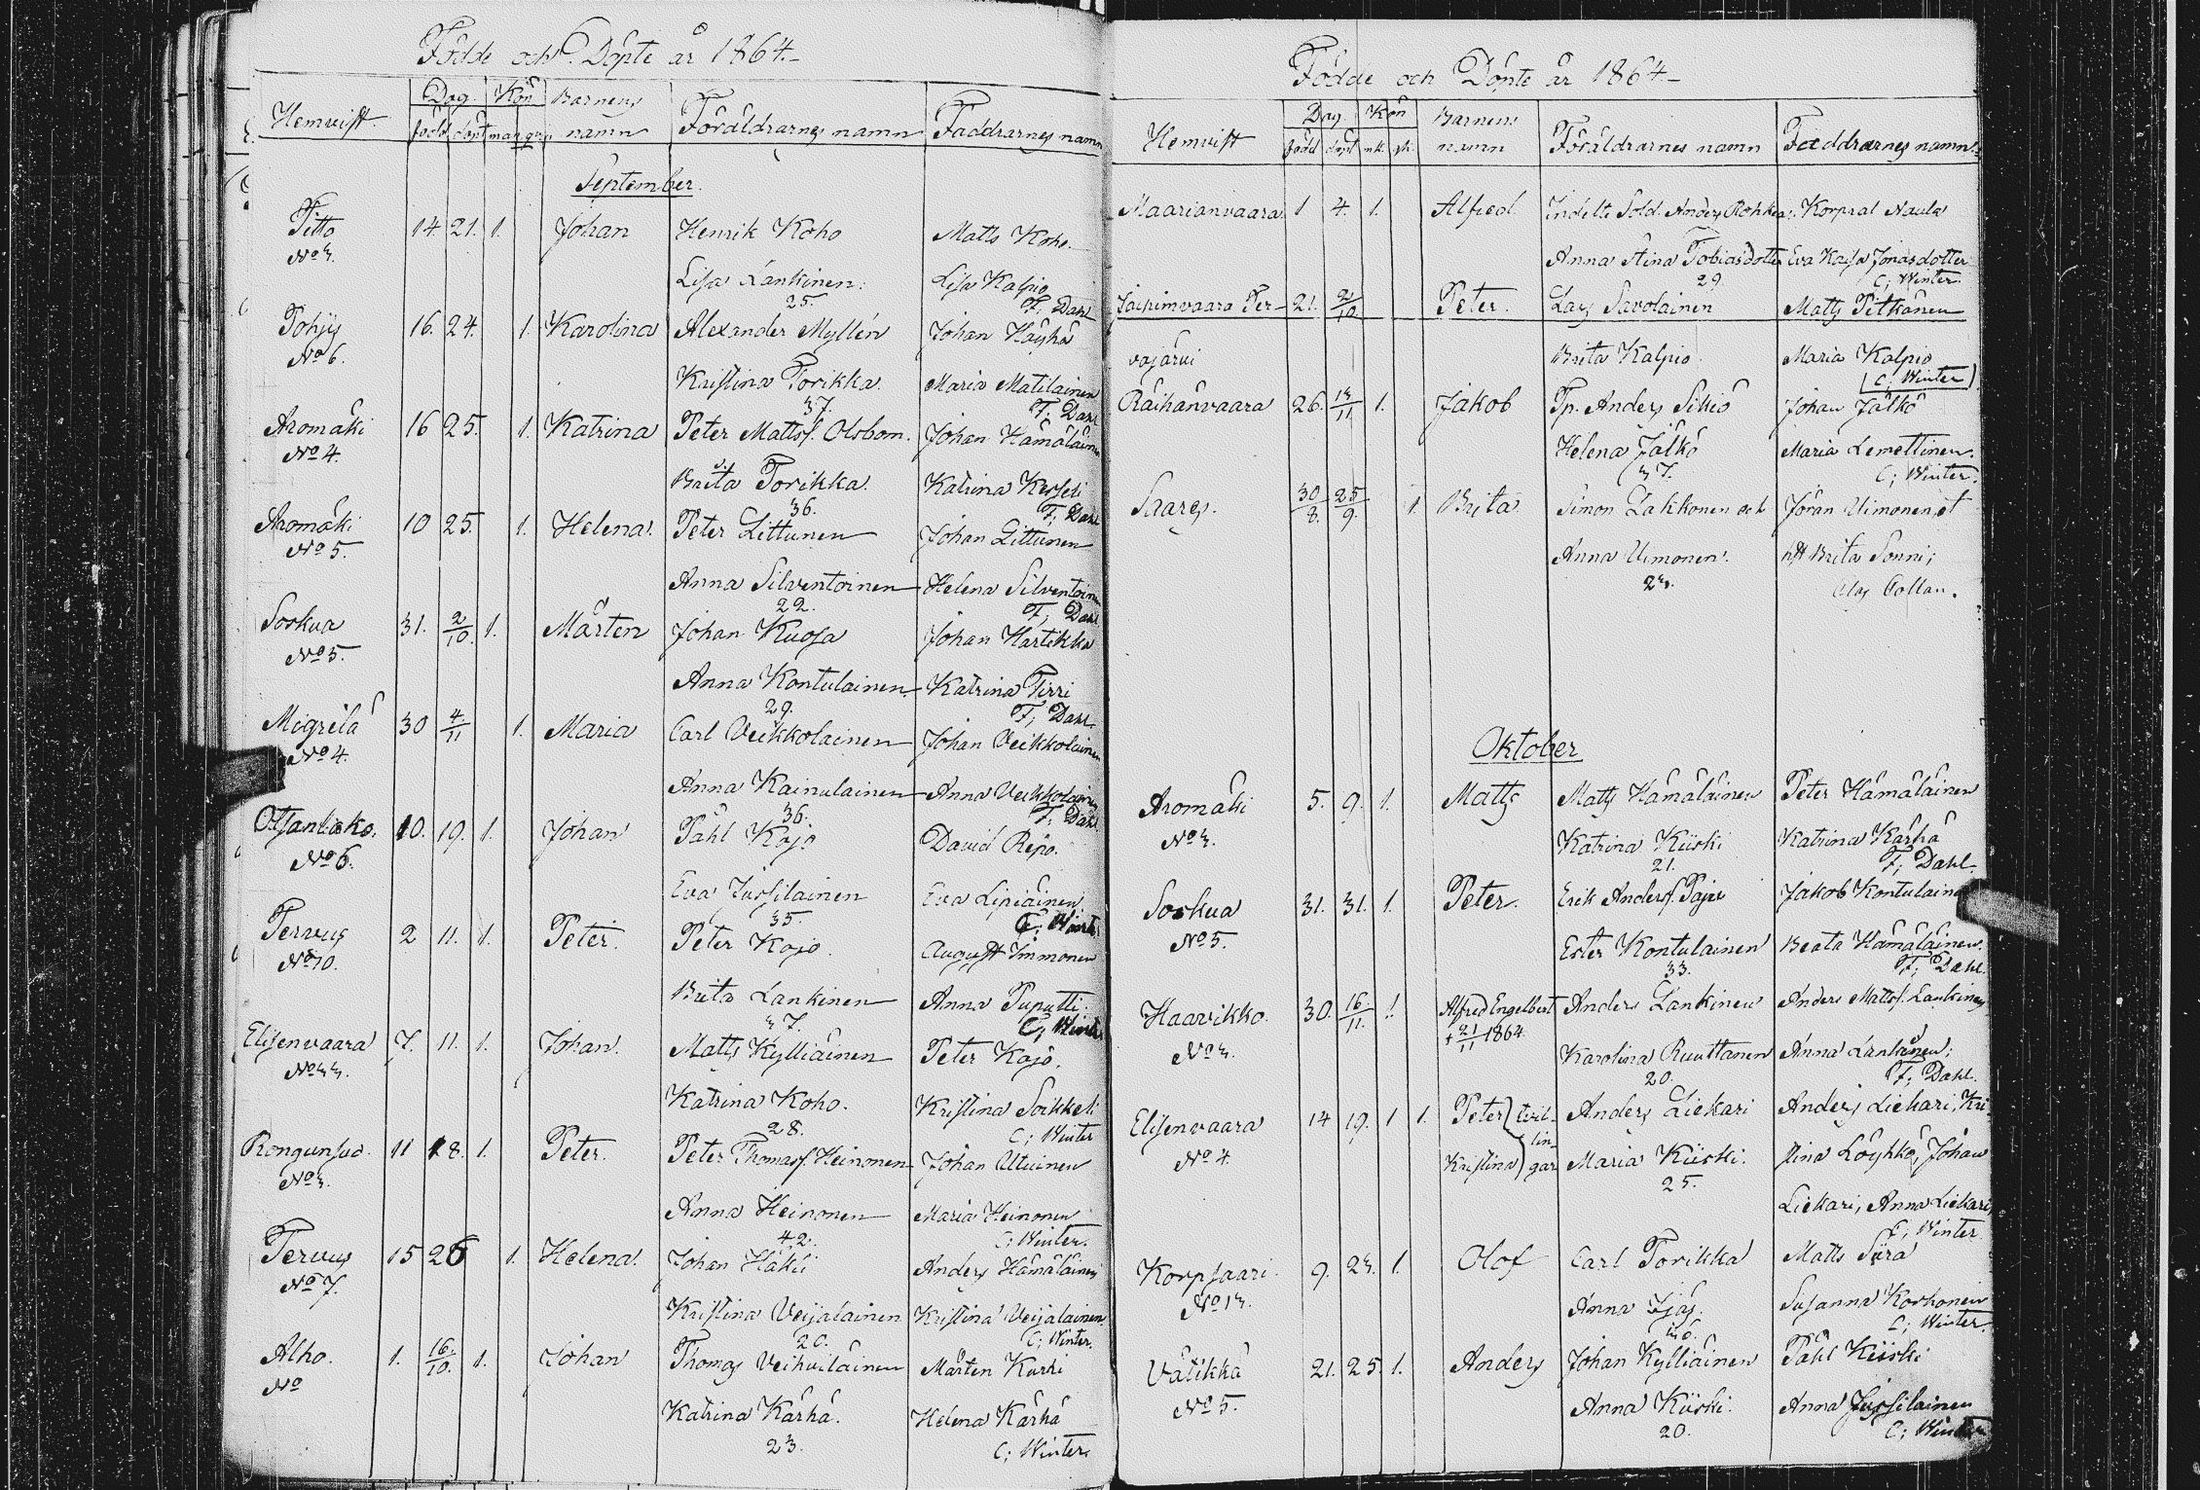 Födde och Döpte år 1864.
Hemvist. Dag. Kön Barnens namn Föräldrarnes namn Faddrarnes namn
född döpt man qv.
September.
Titto 14. 21. 1. Johan Henrik Koho Matts Koho.
No 3. Lisa Lankinen. Lisa Kalpio
25. F; Dahl
Pohjÿ 16. 24. 1. Karolina Alexander Myllén Johan Häyhä
No 6. Kristina Torikka. Maria Matilainen
37. F; Dahl
Aromäki 16 25. 1. Katrina Peter Mattss. Olsbom. Johan Hämäläinen
No 4. Brita Torikka. Katrina Kesseli
36. F; Dahl
Aromäki 10 25. 1. Helena. Peter Littunen Johan Littunen
No 5. Anna Silventoinen Helena Silventoinen
22. F; Dahl
Soskua 31. 2/10. 1. Mårten Johan Kuosa Johan Hartikka
No 5. Anna Kontulainen Katrina Tirri
29. F; Dahl
Migrilä 30 4/11 1. Maria Carl Veikkolainen Johan Veikkolainen
No 4. Anna Kainulainen Anna Veikkolainen
36. F; Dahl
10. 19. 1. Johan Påhl Kojo David Repo.
No 6. Eva Jussilainen Eva Lipiäinen
35 C; Winter
Tervus 2 11. 1. Peter. Peter Kojo. August Immonen
No 10. Brita Lankinen Anna Puputti
37. C; Winter
Elisenvaara 7. 11. 1. Johan. Matts Kylliäinen Peter Kojo.
No 33. Katrina Koho. Kristina Soikkeli
28. C; Winter
11 18. 1. Peter. Peter Thomass. Heinonen Johan Utuinen
No 3. Anna Heinonen Maria Heinonen
42. C; Winter.
Tervus 15 26 1. Helena. Johan Häkli Anders Hämäläinen
No 7. Kristina Veijalainen Kristina Veijalainen
20. C; Winter.
Alho. 1. 16/10. 1. Johan Thomas Veihvilainen Mårten Kurki
No Katrina Kärhä. Helena Kärhä
23. C; Winter.
Födde och Döpte år 1864
Hemvist Dag Kön Barnens namn Föräldrarnes namn Faddrarnes namn
född döpt mk. qk.
Maarianvaara 1 4. 1. Alfred. Indelte Sold. Anders Rohkea: Korpral Naula
Anna Stina Tobiasdotter Eva Kaisa Jonasdotter
29 C; Winter.
21. 2/10. Peter. Lars Savolainen Matts Pitkänen
vajärvi Brita Kalpio. Maria Kalpio
(C; Winter)
Räihänvaara 26. 13/11. 1. Jakob Tp. Anders Sikiö Johan Jälkö
Helena Jälkö Maria Lemettinen.
37. C; Winter.
Saares. 30/8. 25/9. 1. Brita Simon Lakkonen och Jöran Uimonen, et
Anna Uimonen. Brita Sonni;
23. Clas Collan.
Oktober
Aromäki 5. 9. 1. Matts Matts Hämäläinen Peter Hämäläinen
No 3. Katrina Kiiski Katrina Kärhä
21. F; Dahl.
Soskua 31. 31. 1. Peter. Erik Anderss. Pajri Jakob Kontulainen
No 5. Ester Kontulainen Beata Hämäläinen.
33. F; Dahl.
Haavikko. 30. 16/11. 1. Alfred Engelbert Anders Lankinen Anders Mattss. Lankinen
No 3. + 21/11 1864. Karolina Ruuttanen Anna Lankinen;
20. F; Dahl.
Elisenvaara 14 19. 1 1. Peter } tvil- Anders Liekari Anders Liekari, Kri-
lin-
No 4. Kristina } gar Maria Kiiski. stina Löyhkö, Johan
25. Liekari, Anna Liekari,
C; Winter
Korpsaari. 9. 23. 1. Olof Carl Torikka Matts Siira
No 13. Anna Ijäs. Susanna Korhonen
36. C; Winter.
Välikkä 21. 25. 1. Anders Johan Kylliäinen Påhl Kiiski
No 5. Anna Kiiski. Anna Jussilainen
20. C; Winter